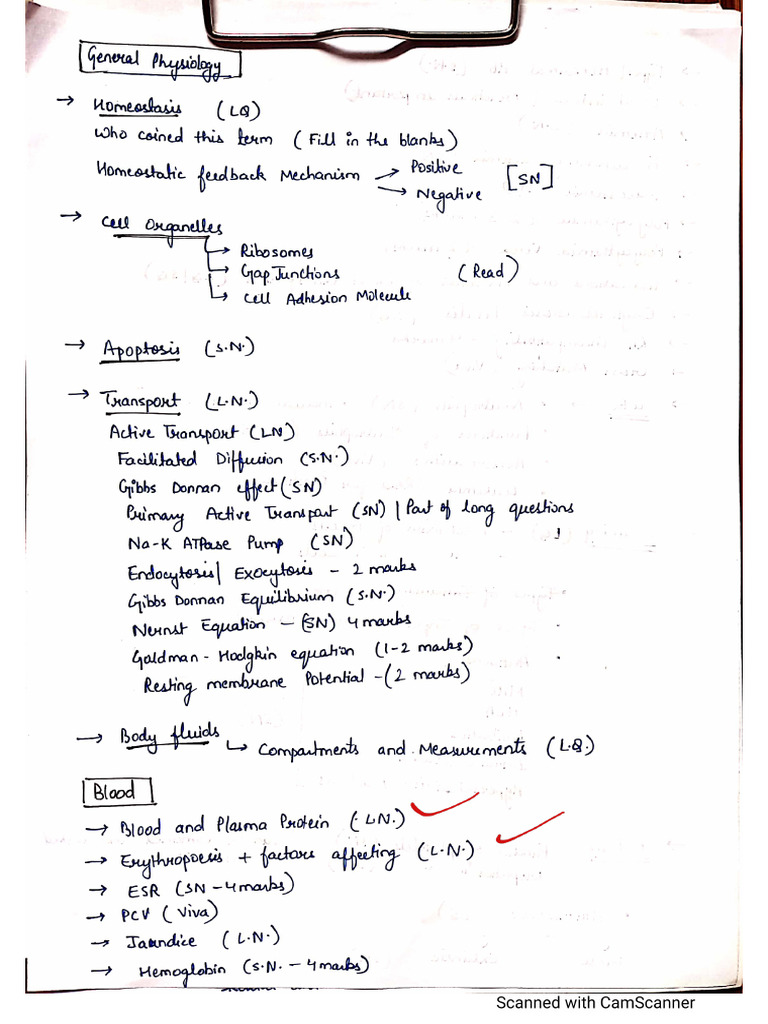 General Physiology
→ Homeostasis (LQ)
Who coined this term (Fill in the blanks)
Homeostatic feedback Mechanism → Positive
→ Negative [SN]
→ Cell Organelles
→ Ribosomes
→ Gap Junctions (Read)
→ Cell Adhesion Molecule
→ Apoptosis (S.N.)
→ Transport (L.N.)
Active Transport (LN)
Facilitated Diffusion (S.N.)
Gibbs Donnan effect (SN)
Primary Active Transport (SN) | Part of long questions
Na-K ATPase Pump (SN)
Endocytosis | Exocytosis - 2 marks
Gibbs Donnan Equilibrium (S.N.)
Nernst Equation - (SN) 4 marks
Goldman - Hodgkin equation (1-2 marks)
Resting membrane Potential - (2 marks)
→ Body fluids
→ Compartments and Measurements (L.Q.)
Blood
→ Blood and Plasma Protein (L.N.)
→ Erythropoesis + factors affecting (L.N.)
→ ESR (SN - 4 marks)
→ PCV (Viva)
→ Jaundice (L.N.)
→ Hemoglobin (S.N. - 4 marks)
Scanned with CamScanner